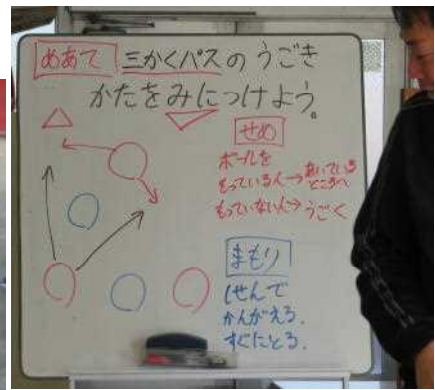 めあて 三かくパスのうごき
かたをみにつけよう。
せめ
ボールを
もっている人→あいている
ところへ
もっていない人→うごく
まもり
しせんで
かんがえる.
すぐにとる.